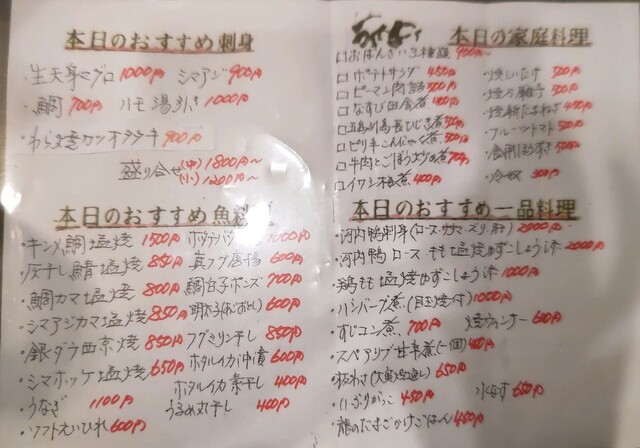 本日のおすすめ刺身
・生天然マグロ 1000円 シマアジ 900円
・鯛 700円 ハモ湯引き 1000円
・わら焼カツオタタキ 900円
盛り合せ(中)1800円〜
(小)1200円〜
本日のおすすめ魚料理
・キンメ鯛塩焼 1500円 ホタテバター 1000円
・灰干し鯖塩焼 850円 真フグ唐揚 600円
・鯛カマ塩焼 800円 鯛白子ポンズ 700円
・シマアジカマ塩焼 850円 明太子 600円
・銀ダラ西京焼 850円 フグミリン干し 850円
・シマホッケ塩焼 650円 ホタルイカ沖漬 600円
・うなぎ 1100円 ホタルイカ素干し 400円
・ソフトえいひれ 600円 うるめ丸干し 400円
本日の家庭料理
□おばんざい3種盛 900円〜
□ポテトサラダ 450円 ・焼しいたけ 500円
□ピーマン肉詰 500円 ・焼万願寺 500円
□なすび田舎煮 400円 ・焼新たまねぎ 450円
□五島列島長ひじき煮 500円 ・フルーツトマト 500円
□ピリ辛こんにゃく煮 500円 500円
□牛肉とごぼう 煮 700円 ・冷奴 300円
□イワシ梅煮 400円
本日のおすすめ一品料理
・河内鴨刺身(ロース・ササミ・ズリ・肝) 2000円
・河内鴨 ロース もも 塩焼ゆずこしょう添 2000円
・鶏もも塩焼ゆずこしょう添 1000円
・ハンバーグ煮(目玉焼付) 1000円
・すじコン煮 700円 焼ウィンナー 600円
・スペアリブ甘辛煮(一個) 450円
・板わさ 650円
・いぶりがっこ 450円 水なす 650円
・龍のたまごかけごはん 450円